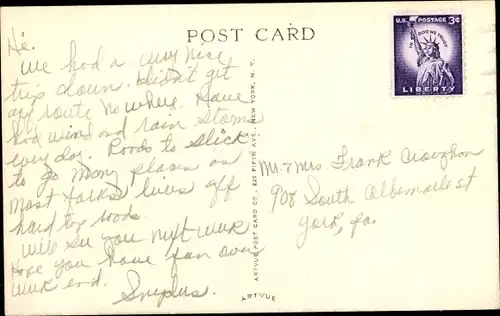 POST CARD
U.S. POSTAGE 3¢
IN GOD WE TRUST
LIBERTY
Hi.
We had a very nise
trip down. Didn't get
any route no where. Have
had wind and rain storms
every day. Roads to slick
to go many places as
most folks lives off
hard top roads.
Will see you next week
Hope you have fun over
week end.
Mr & Mrs. Frank
908 South Albemarle st
York, Pa.
ARTVUE POST CARD CO., 225 FIFTH AVE., NEW YORK, N. Y.
ARTVUE